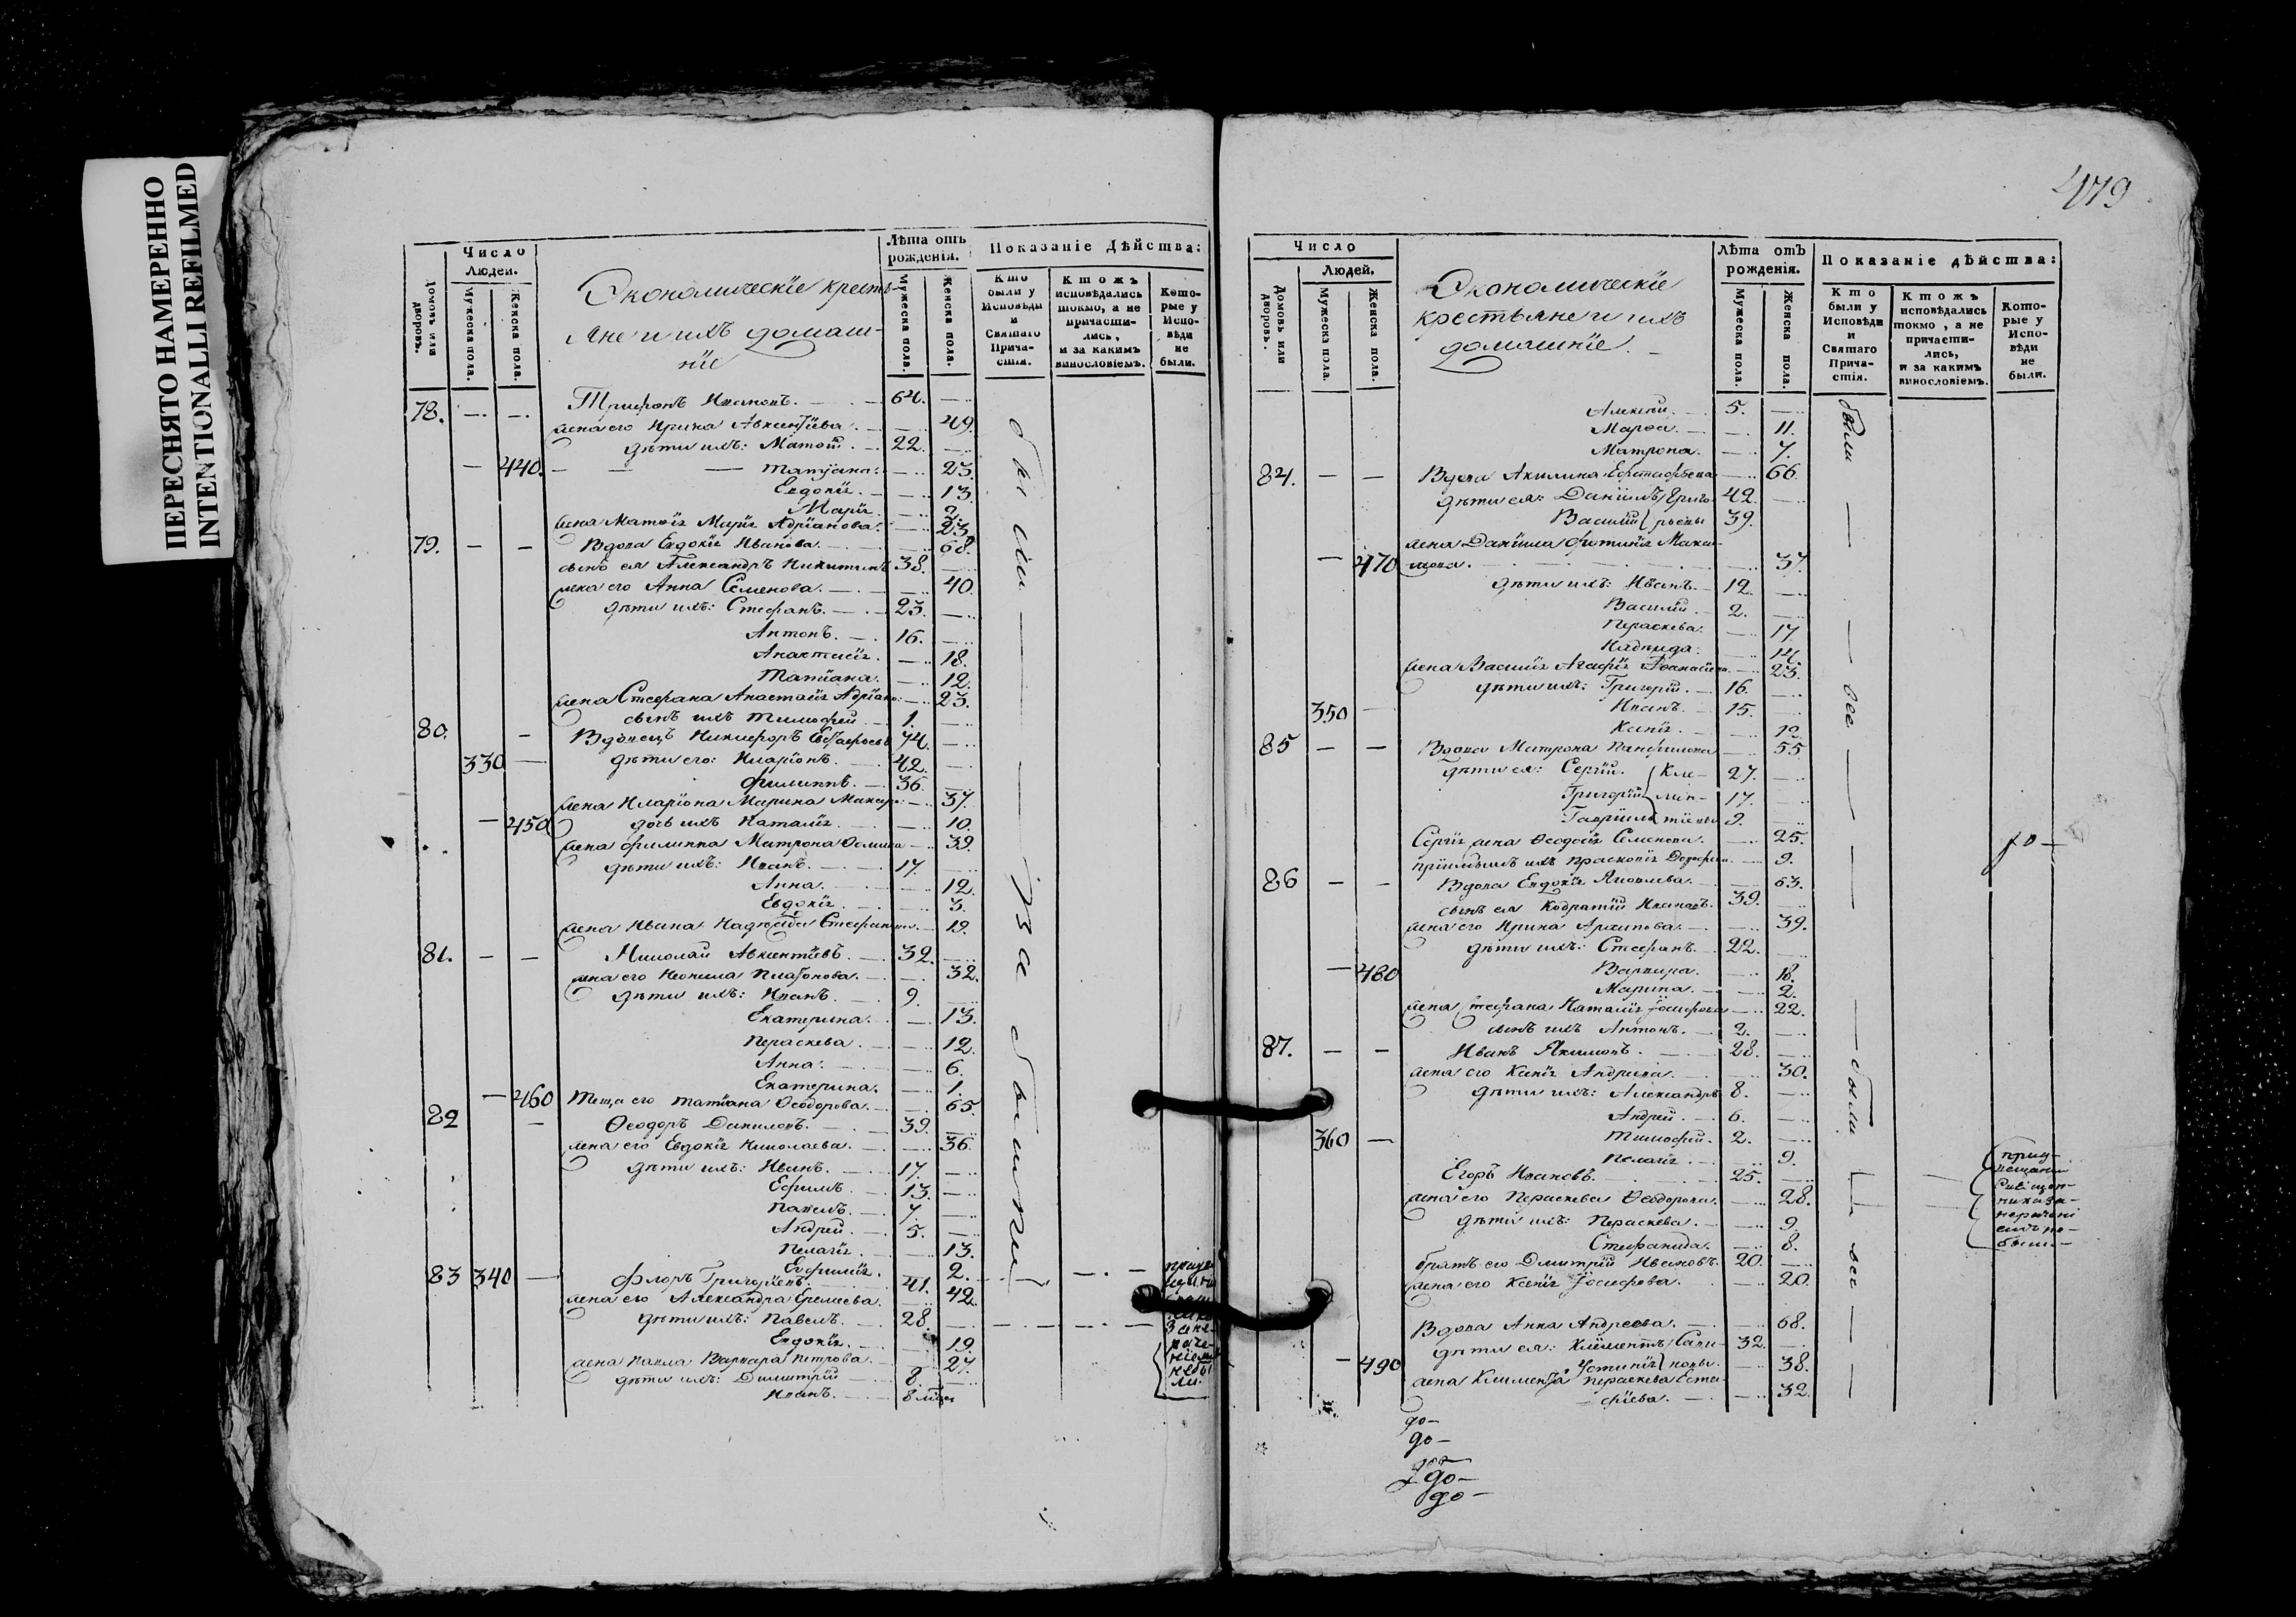 ПЕРЕСНЯТО НАМЕРЕННО
INTENTIONALLI REFILMED
Число
Людей.
Домовъ или дворовъ.
Мужеска пола.
Женска пола.
Экономическіе кресть-
яне и ихъ домаш-
ніе
Лѣта отъ рожденія.
Мужеска пола.
Женска пола.
Показаніе Дѣйства:
Кто были у Исповѣди и Святаго Прича-стія.
Ктожъ исповѣдались токмо, а не причасти-лись, и за какимъ винословіемъ.
Кото-рые у Испо-вѣди не были.
78. — — Трифонъ Ивановъ. — 64. —
жена его Ирина Авксентіева. — 49.
дѣти ихъ: Матѳій. — 22. —
— 440. — Татіана. — 23.
Евдокія. — 13.
Марія. — 2.
жена Матѳія Марія Адріанова. — 23.
79. — — Вдова Евдокія Иванова. — 68.
сынъ ея Александръ Никитинъ 38. —
жена его Анна Семенова. — 40.
дѣти ихъ: Стефанъ. — 23. —
Антонъ. — 16. —
Анастасія. — 18.
Татіана. — 12.
жена Стефана Анастасія Адріано: — 23.
сынъ ихъ Тимофей. — 1. —
80. — Вдовецъ Никифоръ 74. —
330 — дѣти его: Иларіонъ. — 42. —
Филиппъ. — 36. —
жена Иларіона Марина Макаро: — 37.
— 450 дочь ихъ Наталія. — 10.
жена Филиппа Матрона — 39.
дѣти ихъ: Иванъ. — 17. —
Анна. — 12.
Евдокія. — 3.
жена Ивана Надежда — 19.
81. — — Николай Авксентіевъ. — 32. —
жена его Неонила Платонова. — 32.
дѣти ихъ: Иванъ. — 9. —
Екатерина. — 13.
Параскева. — 12.
Анна. — 6.
Екатерина. — 1.
— 460 Теща его Татіана Ѳеодорова. — 65.
82 — Ѳеодоръ Даниловъ. — 39. —
жена его Евдокія Николаева. — 36.
дѣти ихъ: Иванъ. — 17. —
Ефимъ. — 13. —
Павелъ. — 7. —
Андрей. — 5. —
Пелагія. — 13.
Евфимія. — 2.
83 340 — Флоръ Григорьевъ. — 41. —
жена его Александра Еремеева. — 42.
дѣти ихъ: Павелъ. — 28. —
Евдокія. — 19.
жена Павла Варвара Петрова. — 27.
дѣти ихъ: Димитрій — 8. —
Иванъ. — 8
были
479
Число
Людей.
Домовъ или дворовъ.
Мужеска пола.
Женска пола.
Экономическіе
крестьяне и ихъ
домашніе.
Лѣта отъ рожденія.
Мужеска пола.
Женска пола.
Показаніе дѣйства:
Кто были у Исповѣди и Святаго Прича-стія.
Ктожъ исповѣдались токмо, а не причасти-лись, и за какимъ винословіемъ.
Кото-рые у Испо-вѣди не были.
Алексѣй. — 5. —
Марѳа. — 11.
Матрона. — 7.
84. — — Вдова Акилина — 66.
дѣти ея: Даніилъ Григо- 42. —
Василій рьевы 39.
жена Даніила Фотинія Макси-
— 470 мова. — 37.
дѣти ихъ: Иванъ. — 12. —
Василій. — 2. —
Параскева. — 17.
Надежда. — 14.
жена Василія Агафія — 23.
дѣти ихъ: Григорій. — 16. —
350 — Иванъ. — 15. —
Ксенія. —
85 — — Вдова Матрона Панфилова — 55
дѣти ея: Сергій. Кле- 27. —
Григорій мен- 17. —
Гавріилъ тьевы 9.
Сергія жена Ѳеодосія Семенова. — 25.
9.
86 — — Вдова Евдокія Яковлева. — 63.
сынъ ея Кодратій Ивановъ. 39. —
жена его Ирина Архипова. — 39.
дѣти ихъ: Стефанъ. — 22. —
— 480 Варвара. — 18.
Марина. — 2.
жена Стефана Наталія Іосифова — 22.
сынъ ихъ Антонъ. — 2. —
87. — — Иванъ Якимовъ. — 28. —
жена его Ксенія Андреева. — 30.
дѣти ихъ: Александръ 8. —
Андрей. — 6. —
360 — Тимофей. 2. —
Пелагія. — 9.
Егоръ Ивановъ. — 25. —
жена его Параскева Ѳеодорова. — 28.
дѣти ихъ: Параскева. — 9.
Стефанида. — 8.
братъ его Димитрій Ивановъ. 20. —
жена его Ксенія Іосифова. — 20.
Вдова Анна Андреева. — 68.
дѣти ея: Климентъ 32. —
— 490 Устинія — 38.
жена Климента Параскева Евста-
фіева. — 32.
были
все
были
все
до —
до —
до —
до —
до —